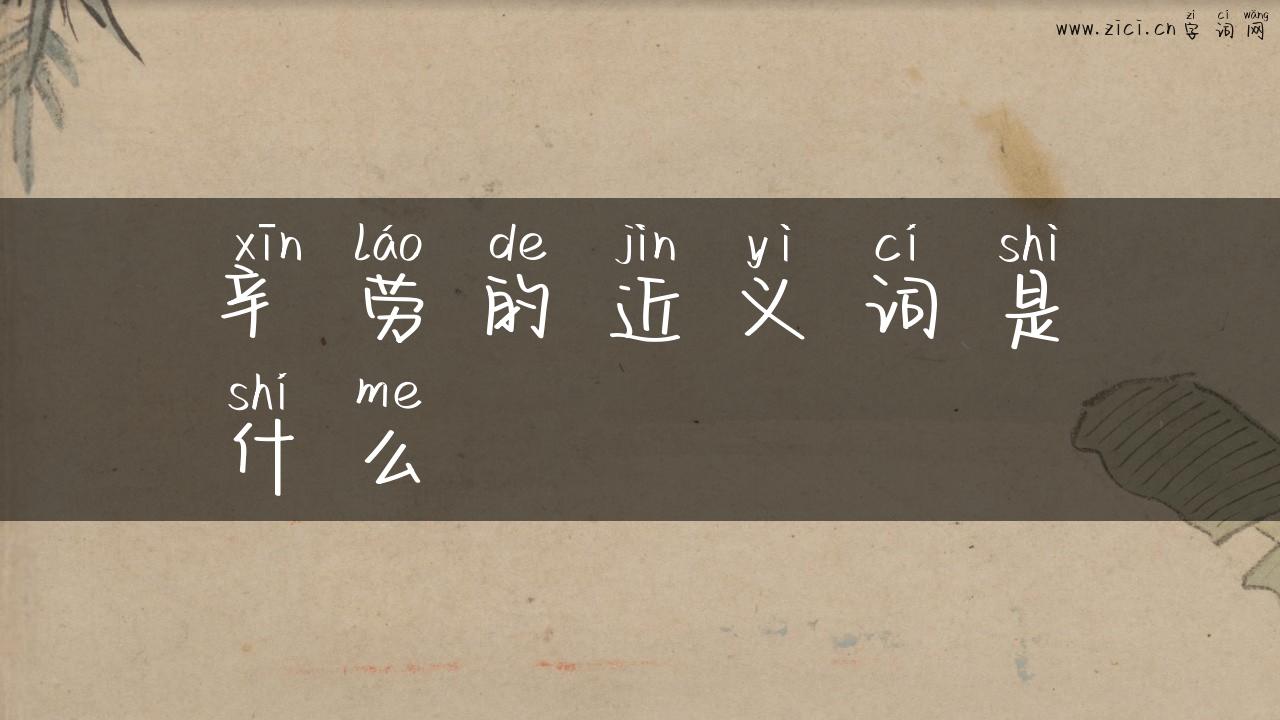 zì cí wǎng
www.zici.cn 字词网
xīn láo de jìn yì cí shì
辛劳的近义词是
shí me
什么